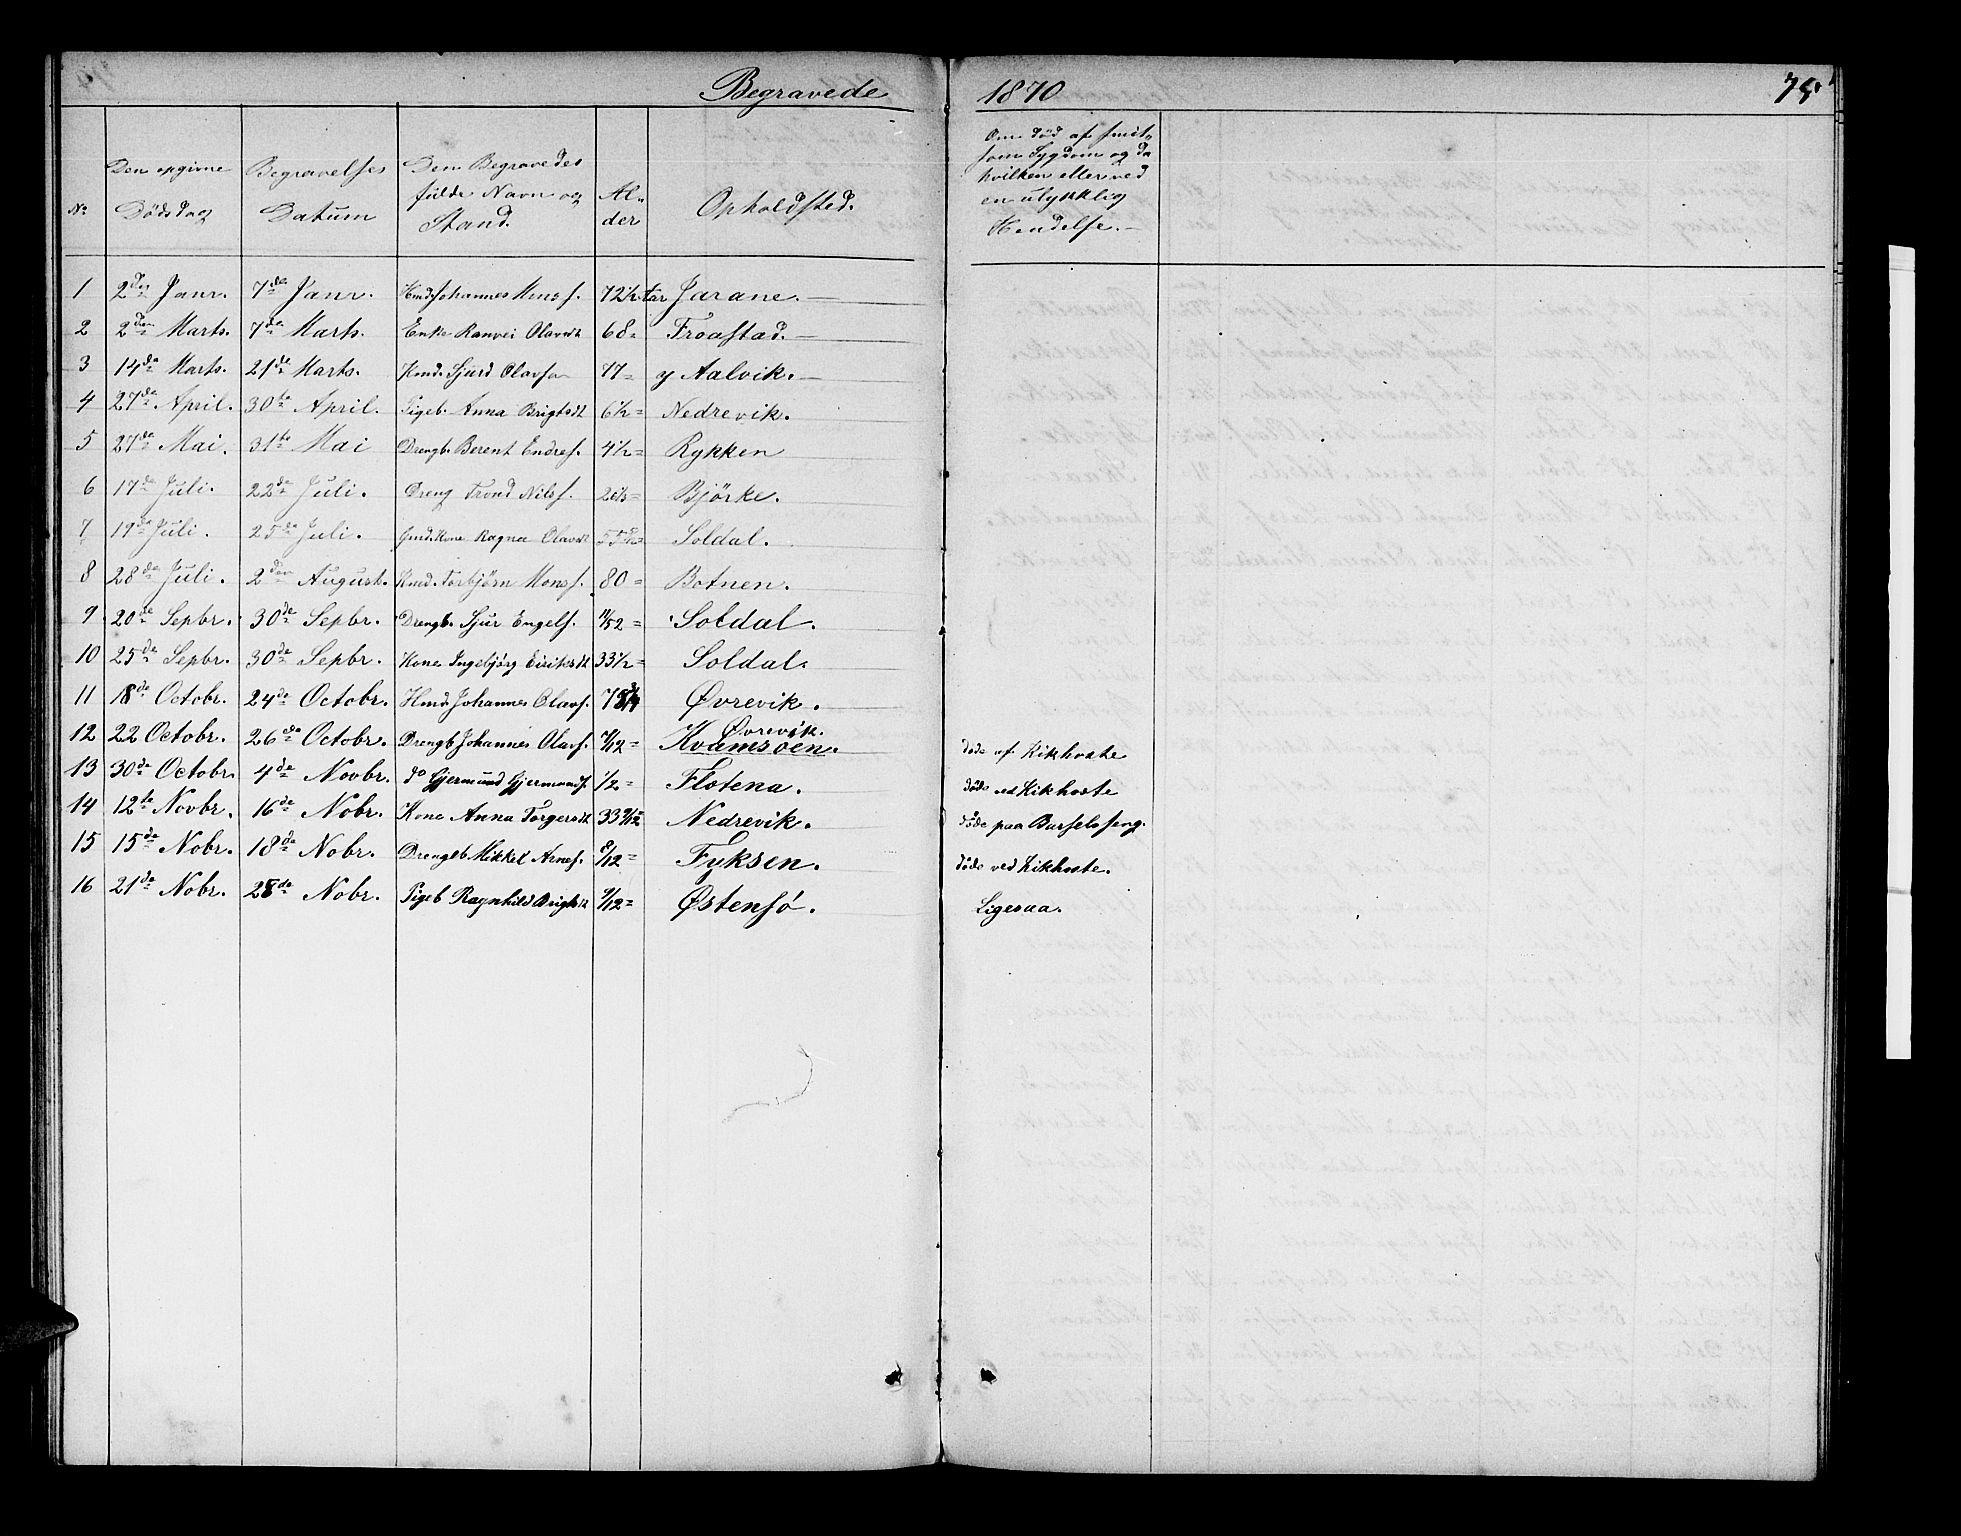 Begravede 1870 75.
No | Den opgivne Dödsdag | Begravelses Datum | Den Begravedes fulde Navn og Stand. | Alder | Opholdsted. | Om död af smitsom Sygdom og da hvilken eller ved en ulykklig Hendelse.
1 | 2den Janr. | 7de Janr. | Hmd Johannes Monss. | 72½ Aar | Jarane.
2 | 2den Marts. | 7de Marts. | Enke Ranvei Olavsdt | 68 | Froastad.
3 | 14de Marts. | 21de Marts. | Kmd. Sjurd Olavsen | 77 | y Aalvik.
4 | 27de April. | 30te April. | Pigeb. Anna Brigtsdt | 6½ | Nedrevik.
5 | 27de Mai. | 31te Mai | Drengb. Berent Endres. | 4½ | Rykken
6 | 17de Juli. | 22de Juli. | Dreng Trond Nilss. | | Björke.
7 | 19de Juli. | 25de Juli. | Gmdskone Ragna Olavsdt | | Soldal.
8 | 28de Juli. | 2den August. | Kmd. Torbjörn Monss. | 80 | Botnen.
9 | 20de Sepbr. | 30de Sepbr. | Drengb. Sjur Engels. | 11/52 | Soldal.
10 | 25de Sepbr. | 30de Sepbr. | Kone Ingebjörg Eiriksdt | 33½ | Soldal.
11 | 18de Octobr. | 24de Octobr. | Hmd. Johannes Olavs. | | Øvrevik.
12 | 22 Octobr. | 26de Octobr. | Drengb Johannes Olavs. | | Øvrevik. Kvamsöen. | döde af Kikhoste
13 | 30de Octobr. | 4de Novbr. | do Gjermund Gjermunds. | ½ | Flotena. | döde ved Kikhoste
14 | 12te Novbr. | 16de Nobr. | Kone Anna Torgersdt | 33 9/12 | Nedrevik. | döde paa Barselsseng.
15 | 15de Nobr. | 18de Nobr. | Drengeb Mikkel Arnes. | 8/12 | Fyksen. | döde ved Kikhoste.
16 | 21de Nobr. | 28de Nobr. | Pigeb Ragnhild Brigtsdt | 9/12 | Østensö. | Ligesaa.